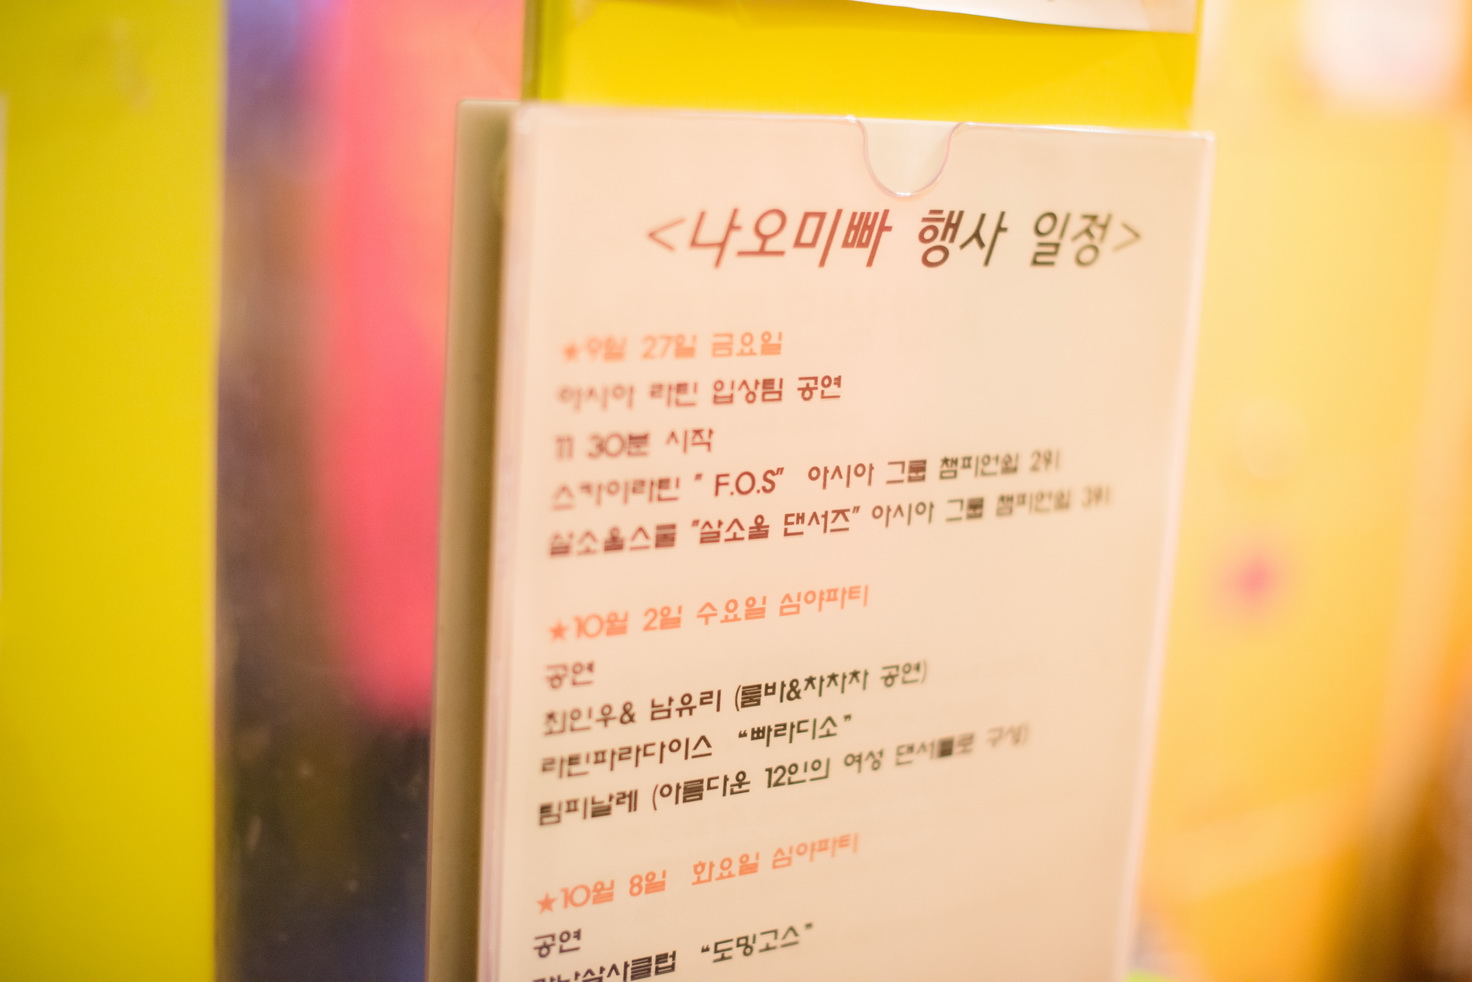 <나오미빠 행사 일정>
★9월 27일 금요일
아시아 라틴 입상팀 공연
11 30분 시작
스카이라틴 " F.O.S" 아시아 그룹 챔피언쉽 2위
살소울스쿨 "살소울 댄서즈" 아시아 그룹 챔피언쉽 3위
★10월 2일 수요일 심야파티
공연
최인우& 남유리 (룸바&차차차 공연)
라틴파라다이스 “빠라디소”
팀피날레 (아름다운 12인의 여성 댄서들로 구성)
★10월 8일 화요일 심야파티
공연
“도밍고스”